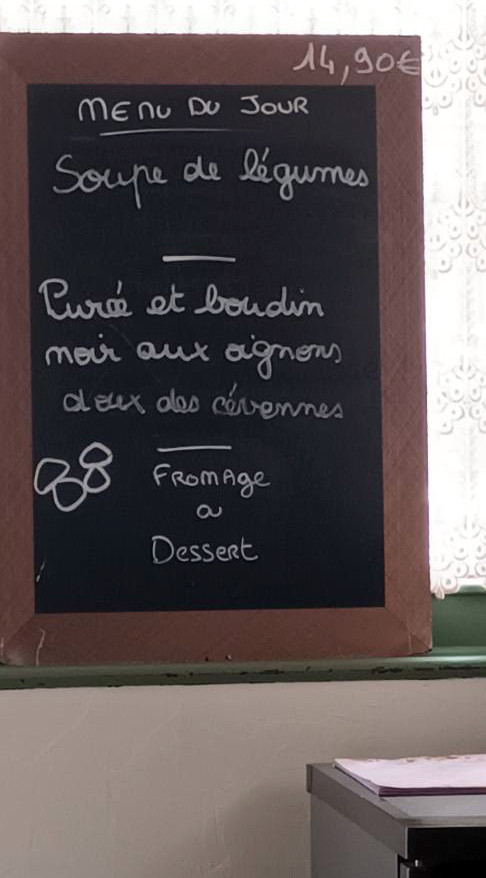 14,90€
MENU DU JOUR
Soupe de légumes
Purée et boudin
noir aux oignons
doux des cévennes
FROMAGE
ou
Dessert